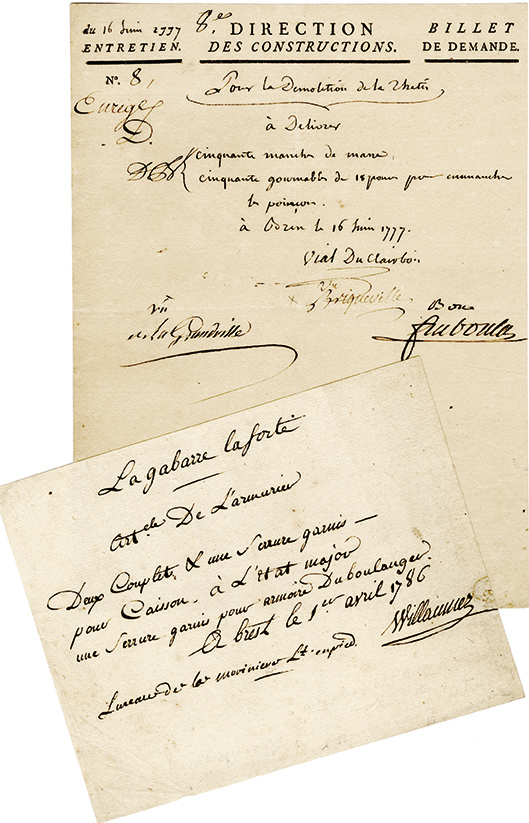 du 16 Juin 1777
ENTRETIEN.
8.e DIRECTION
DES CONSTRUCTIONS.
BILLET
DE DEMANDE.
N.o 8,
Pour la Demolition de la
D.
à Delivrer
cinquante manches de masse,
cinquante gournables de 18 pouces pour emmancher
les poinçons.
à Brest le 16 Juin 1777.
Vial Du Clairbois
Vu
Briqueville
Vu
de la Grandville
Bon
La gabarre la forte
Art.cle De L'armurier
Deux Couplets & une Serrure garnis
pour Caisson, à L'état major
une Serrure garnis pour armoire Du boulanger.
A brest le 1er avril 1786
Willaumez
de la Lt. en pied.